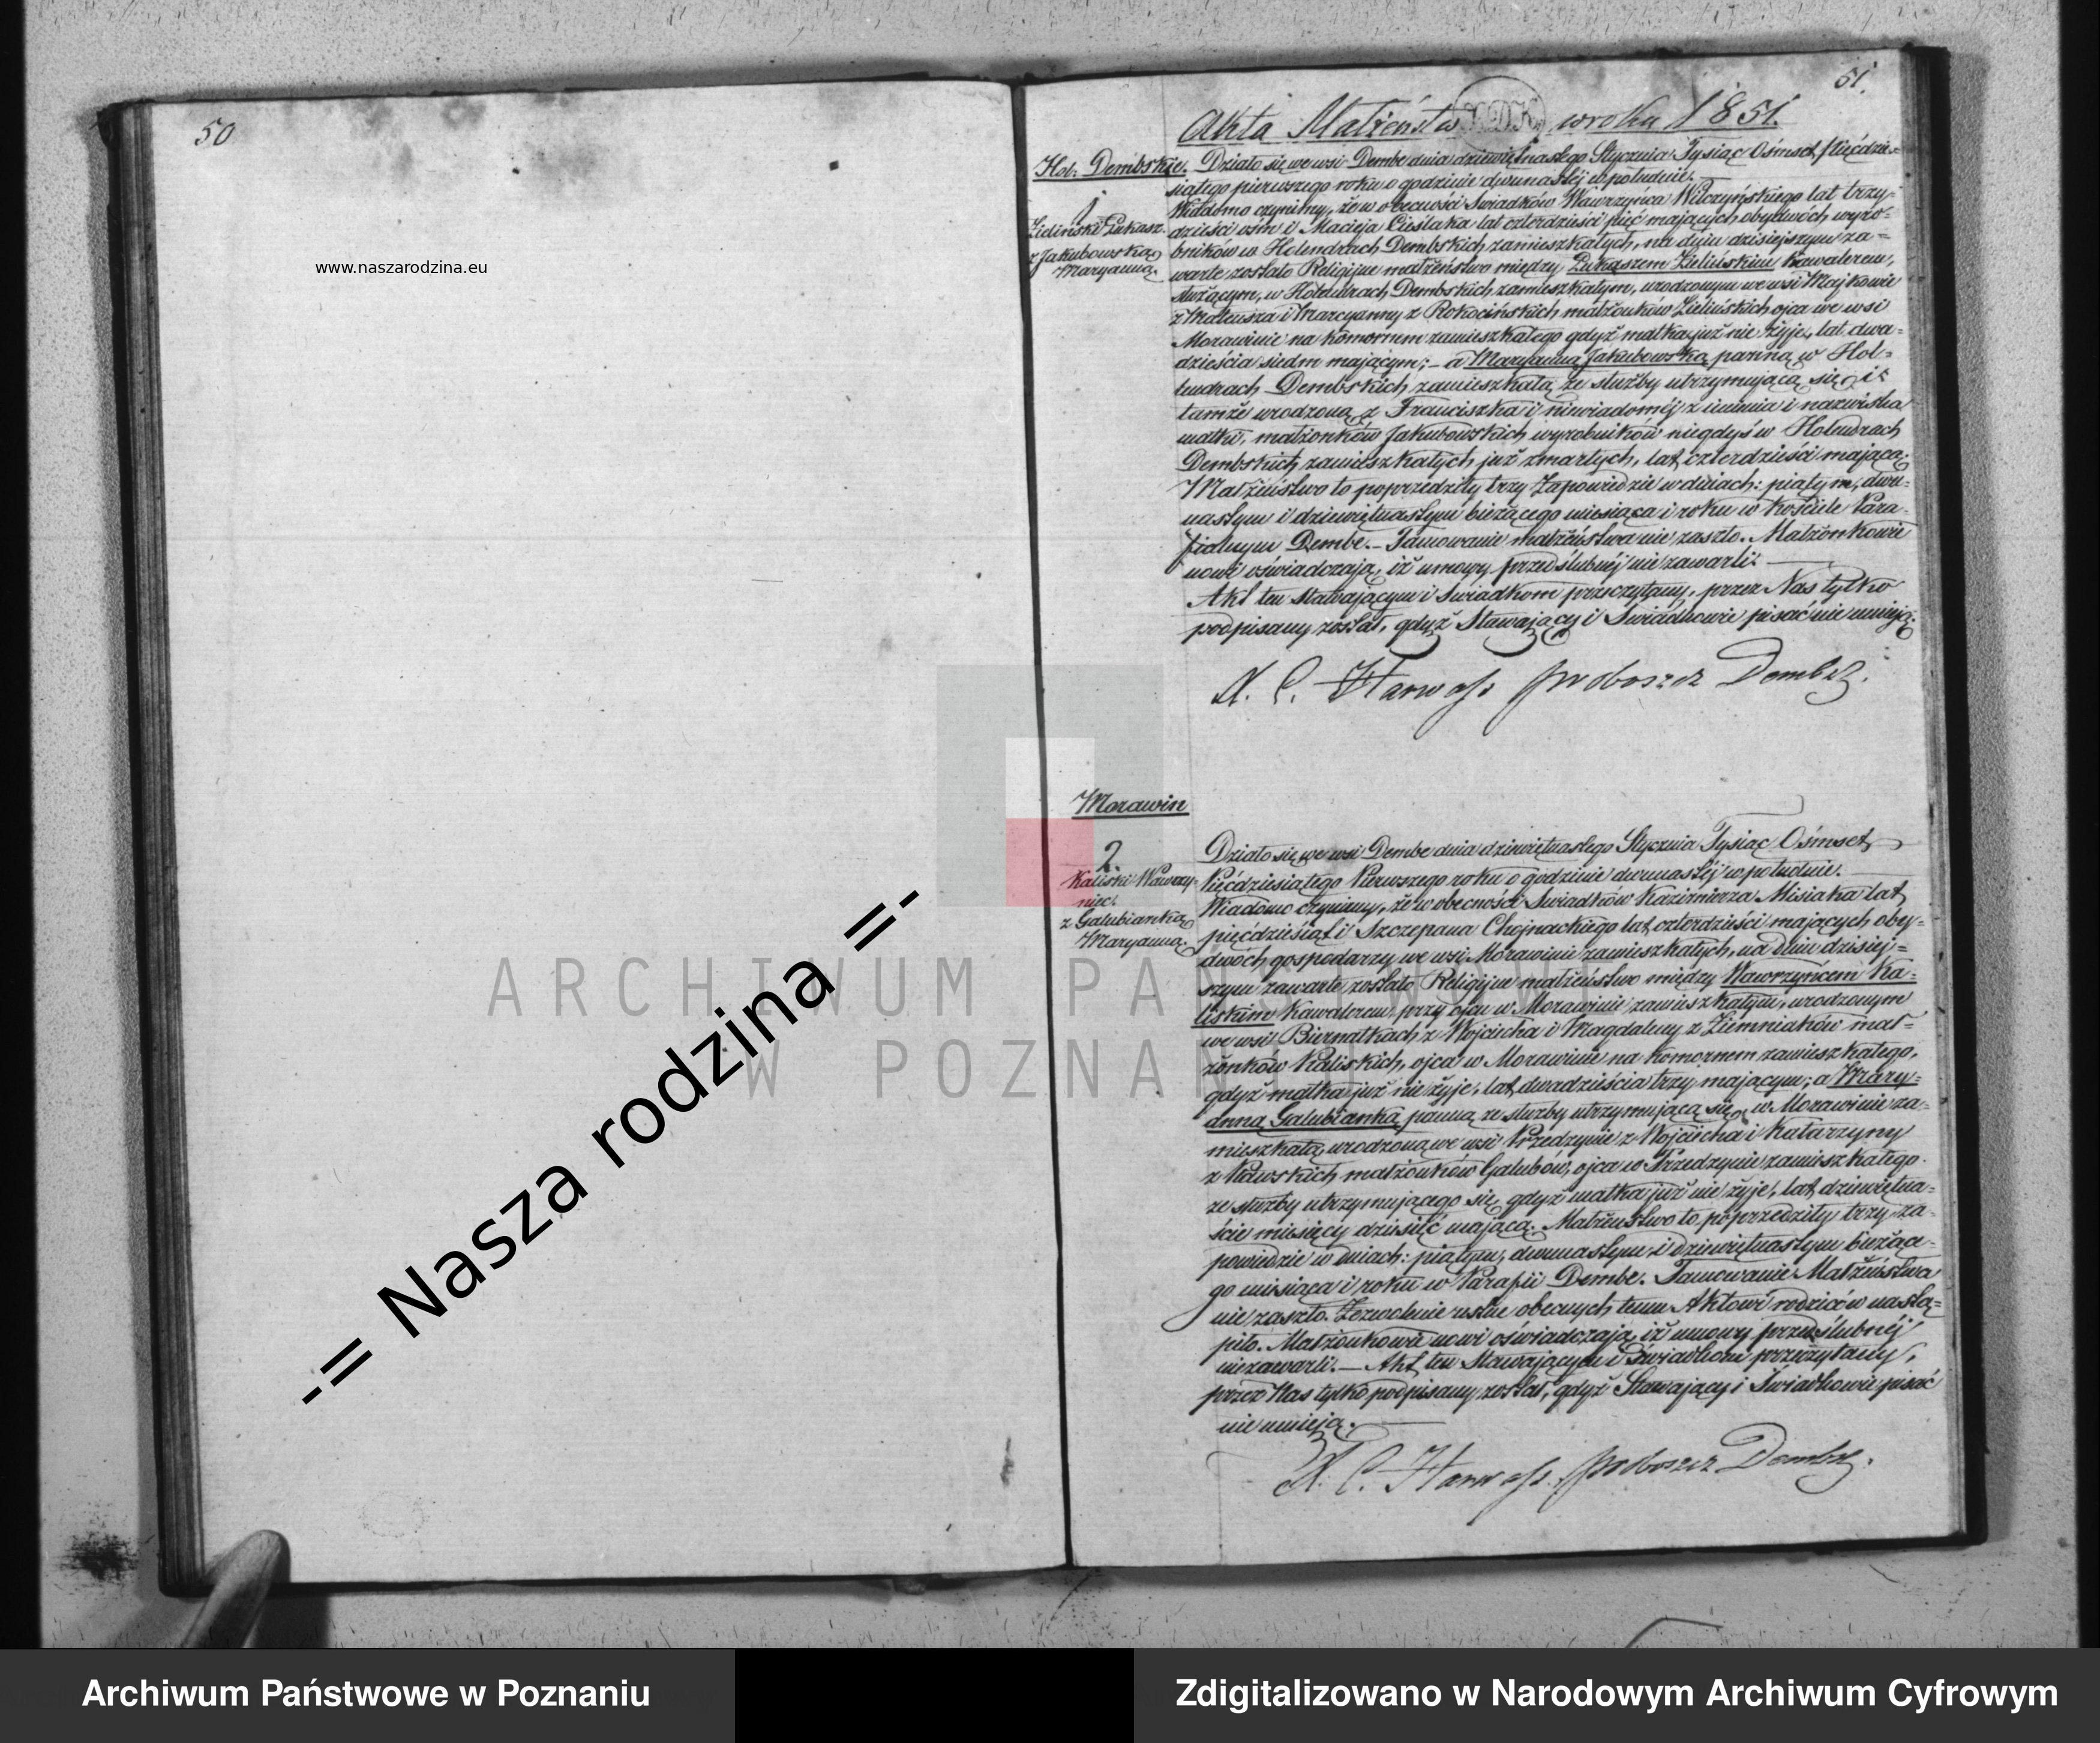 50
www.naszarodzina.eu
-= Nasza rodzina =-
51.
Akta Małżeństw w roku 1851.
Hol: Dembskie.
1
Zieliński Łukasz.
z Jakubowską
Maryanną.
Działo się we wsi Dembe dnia dziewiętnastego Stycznia Tysiąc Ośmset Pięćdzie=
siątego pierwszego roku o godzinie dwunastéj w południe.
Wiadomo czynimy, że w obecności Świadków Wawrzyńca Wilczyńskiego lat trzy=
dzieści ośm i Macieja Cieślaka lat czterdzieści pięć mających obydwóch wyro=
bników w Holendrach Dembskich zamieszkałych, na dniu dzisiejszym za=
warte zostało Religijne małżeństwo między Łukaszem Zielińskim Kawalerem,
służącym, w Holendrach Dembskich zamieszkałym, urodzonym we wsi Majkowie
z Mateusza i Marcyanny z Rokocińskich małżonków Zielińskich ojca we wsi
Morawinie na komornem zamieszkałego gdyż matka już nie żyje, lat dwa=
dzieścia siedm mającym; – a Maryanną Jakubowską panną w Hol=
lendrach Dembskich zamieszkałą ze służby utrzymującą się i
tamże urodzoną z Franciszka i niewiadoméj z imienia i nazwiska
matki, małżonków Jakubowskich wyrobników niegdyś w Holendrach
Dembskich zamieszkałych już zmarłych, lat czterdzieści mającą.
Małżeństwo to poprzedziły trzy Zapowiedzie w dniach: piątym, dwu=
nastym i dziewiętnastym bieżącego miesiąca i roku w Kościele Para=
fialnym Dembe. – Tamowanie małżeństwa nie zaszło. Małżonkowie
nowi oświadczają, iż umowy przedślubnéj nie zawarli.
Akt ten Stawającym i Świadkom przeczytany, przez Nas tylko
podpisany został, gdyż Stawający i Świadkowie pisać nie umieją.
X. C. Harwass proboszcz Dembski.
Morawin
2.
Kaliski Wawrzy-
niec.
z Galubianką
Maryanną.
Działo się we wsi Dembe dnia dziewiętnastego Stycznia Tysiąc Ośmset
Pięćdziesiątego Pierwszego roku o godzinie dwunastéj w południe.
Wiadomo czynimy, że w obecności Świadków Kazimierza Misiaka lat
pięćdziesiąt i Szczepana Chojnackiego lat czterdzieści mających oby=
dwóch gospodarzy we wsi Morawinie zamieszkałych, na dniu dzisiej=
szym zawarte zostało Religijne małżeństwo między Wawrzyńcem Ka=
liskim Kawalerem, przy ojcu w Morawinie zamieszkałym, urodzonym
we wsi Biernatkach z Wojciecha i Magdaleny z Ziemniaków mał=
żonków Kaliskich, ojca w Morawinie na komornem zamieszkałego,
gdyż matka już nie żyje, lat dwadzieścia trzy mającym; a Mary=
anną Galubianką panną ze służby utrzymującą się, w Morawinie za=
mieszkałą, urodzoną we wsi Przedzynie z Wojciecha i Katarzyny
z Pawskich małżonków Galubów, ojca w Przedzynie zamieszkałego
ze służby utrzymującego się, gdyż matka już nie żyje, lat dziewiętna=
ście miesięcy dziesięć mającą. Małżeństwo to poprzedziły trzy za=
powiedzie w dniach: piątym, dwunastym i dziewiętnastym bieżące=
go miesiąca i roku w Parafii Dembe. Tamowanie Małżeństwa
nie zaszło. Zezwolenie ustne obecnych temu Aktowi rodziców nastą=
piło. Małżonkowie nowi oświadczają, iż umowy przedślubnéj
niezawarli. – Akt ten Stawającym i Świadkom przeczytany,
przez Nas tylko podpisany został, gdyż Stawający i Świadkowie pisać
nie umieją.
X. C. Harwass. proboszcz Dembski.
ARCHIWUM PA
W POZNAN
Archiwum Państwowe w Poznaniu
Zdigitalizowano w Narodowym Archiwum Cyfrowym